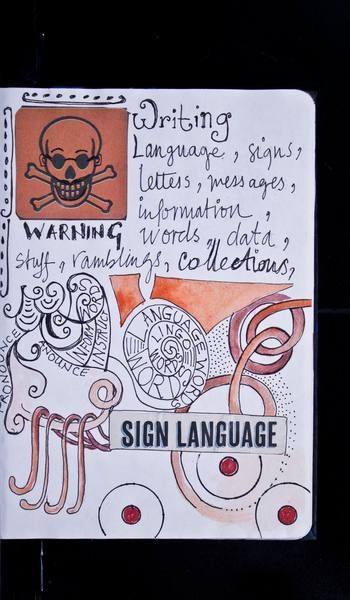 Writing
Language, signs,
letters, messages,
information,
WARNING words, data,
stuff, ramblings, collections,
PRONOUNCE
ANNOUNCE
INFORM
WORD
INSTRUCT
LANGUAGE
WORDS
LINGO
WORD
WORDS
SIGN LANGUAGE